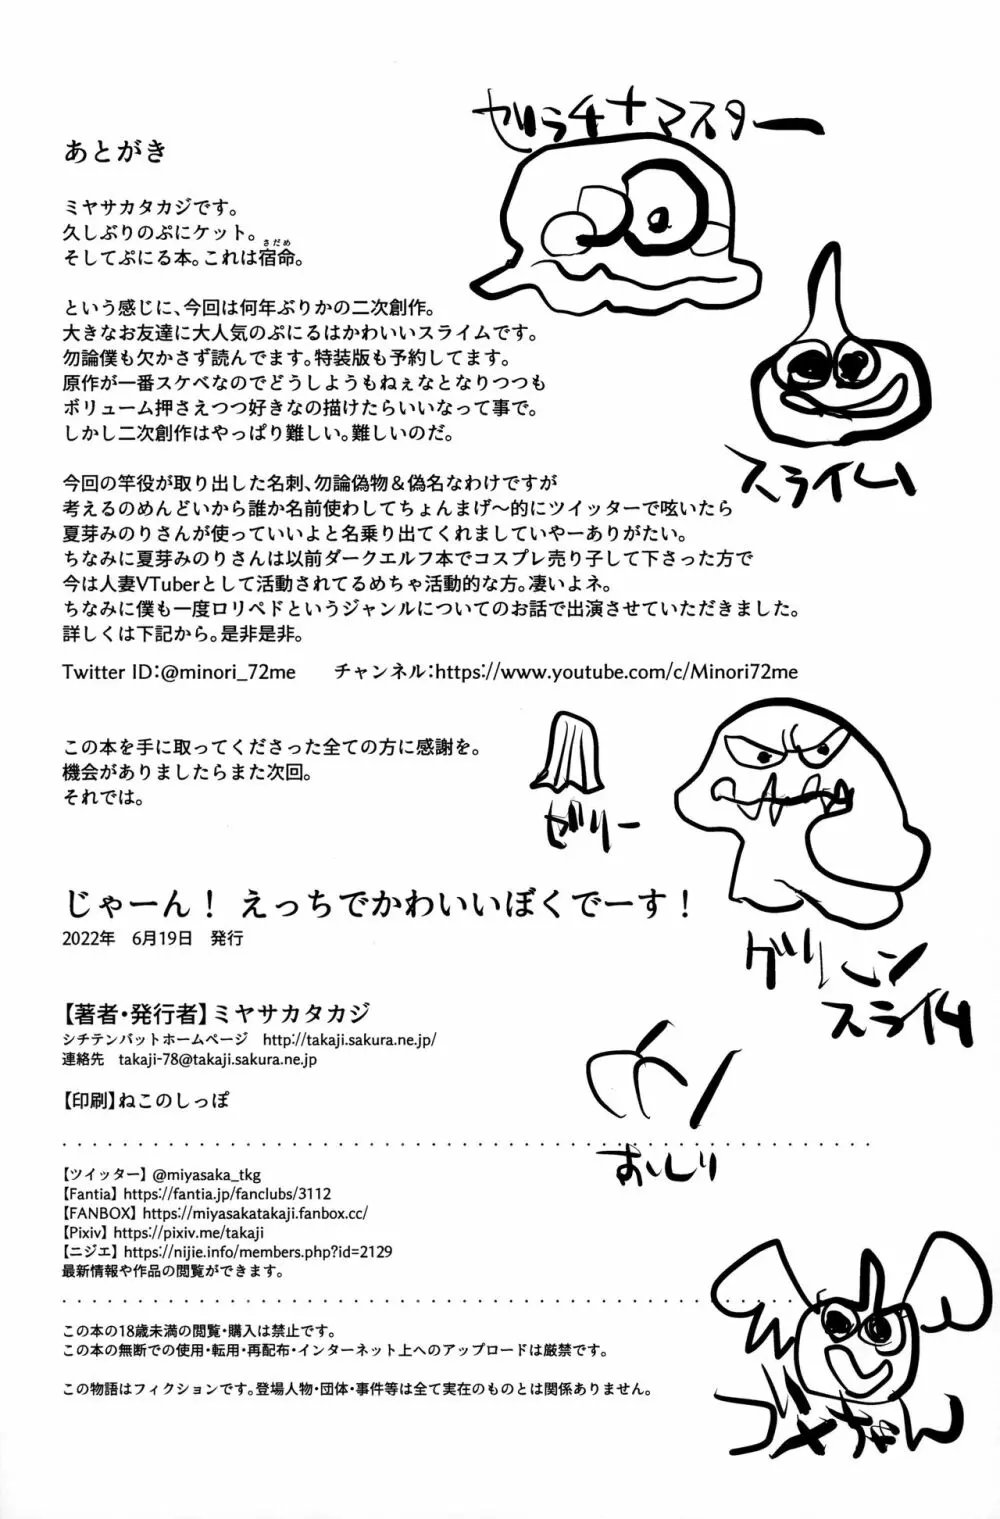 あとがき
ミヤサカタカジです。
久しぶりのぷにケット。
そしてぷにる本。これは宿命。
さだめ
という感じに、今回は何年ぶりかの二次創作。
大きなお友達に大人気のぷにるはかわいいスライムです。
勿論僕も欠かさず読んでます。特装版も予約してます。
原作が一番スケベなのでどうしようもねぇなとなりつつも
ボリューム押さえつつ好きなの描けたらいいなって事で。
しかし二次創作はやっぱり難しい。難しいのだ。
今回の竿役が取り出した名刺、勿論偽物&偽名なわけですが
考えるのめんどいから誰か名前使わしてちょんまげ〜的にツイッターで呟いたら
夏芽みのりさんが使っていいよと名乗り出てくれましていやーありがたい。
ちなみに夏芽みのりさんは以前ダークエルフ本でコスプレ売り子して下さった方で
今は人妻VTuberとして活動されてるめちゃ活動的な方。凄いよネ。
ちなみに僕も一度ロリペドというジャンルについてのお話で出演させていただきました。
詳しくは下記から。是非是非。
Twitter ID:@minori_72me チャンネル:https://www.youtube.com/c/Minori72me
この本を手に取ってくださった全ての方に感謝を。
機会がありましたらまた次回。
それでは。
じゃーん! えっちでかわいいぼくでーす!
2022年 6月19日 発行
【著者・発行者】ミヤサカタカジ
シチテンバットホームページ http://takaji.sakura.ne.jp/
連絡先 takaji-78@takaji.sakura.ne.jp
【印刷】ねこのしっぽ
【ツイッター】@miyasaka_tkg
【Fantia】https://fantia.jp/fanclubs/3112
【FANBOX】https://miyasakatakaji.fanbox.cc/
【Pixiv】https://pixiv.me/takaji
【ニジエ】https://nijie.info/members.php?id=2129
最新情報や作品の閲覧ができます。
この本の18歳未満の閲覧・購入は禁止です。
この本の無断での使用・転用・再配布・インターネット上へのアップロードは厳禁です。
この物語はフィクションです。登場人物・団体・事件等は全て実在のものとは関係ありません。
ゼラチナマスター
スライム
ゼリー
グリーン
スライム
おいしり
ゴメちゃん